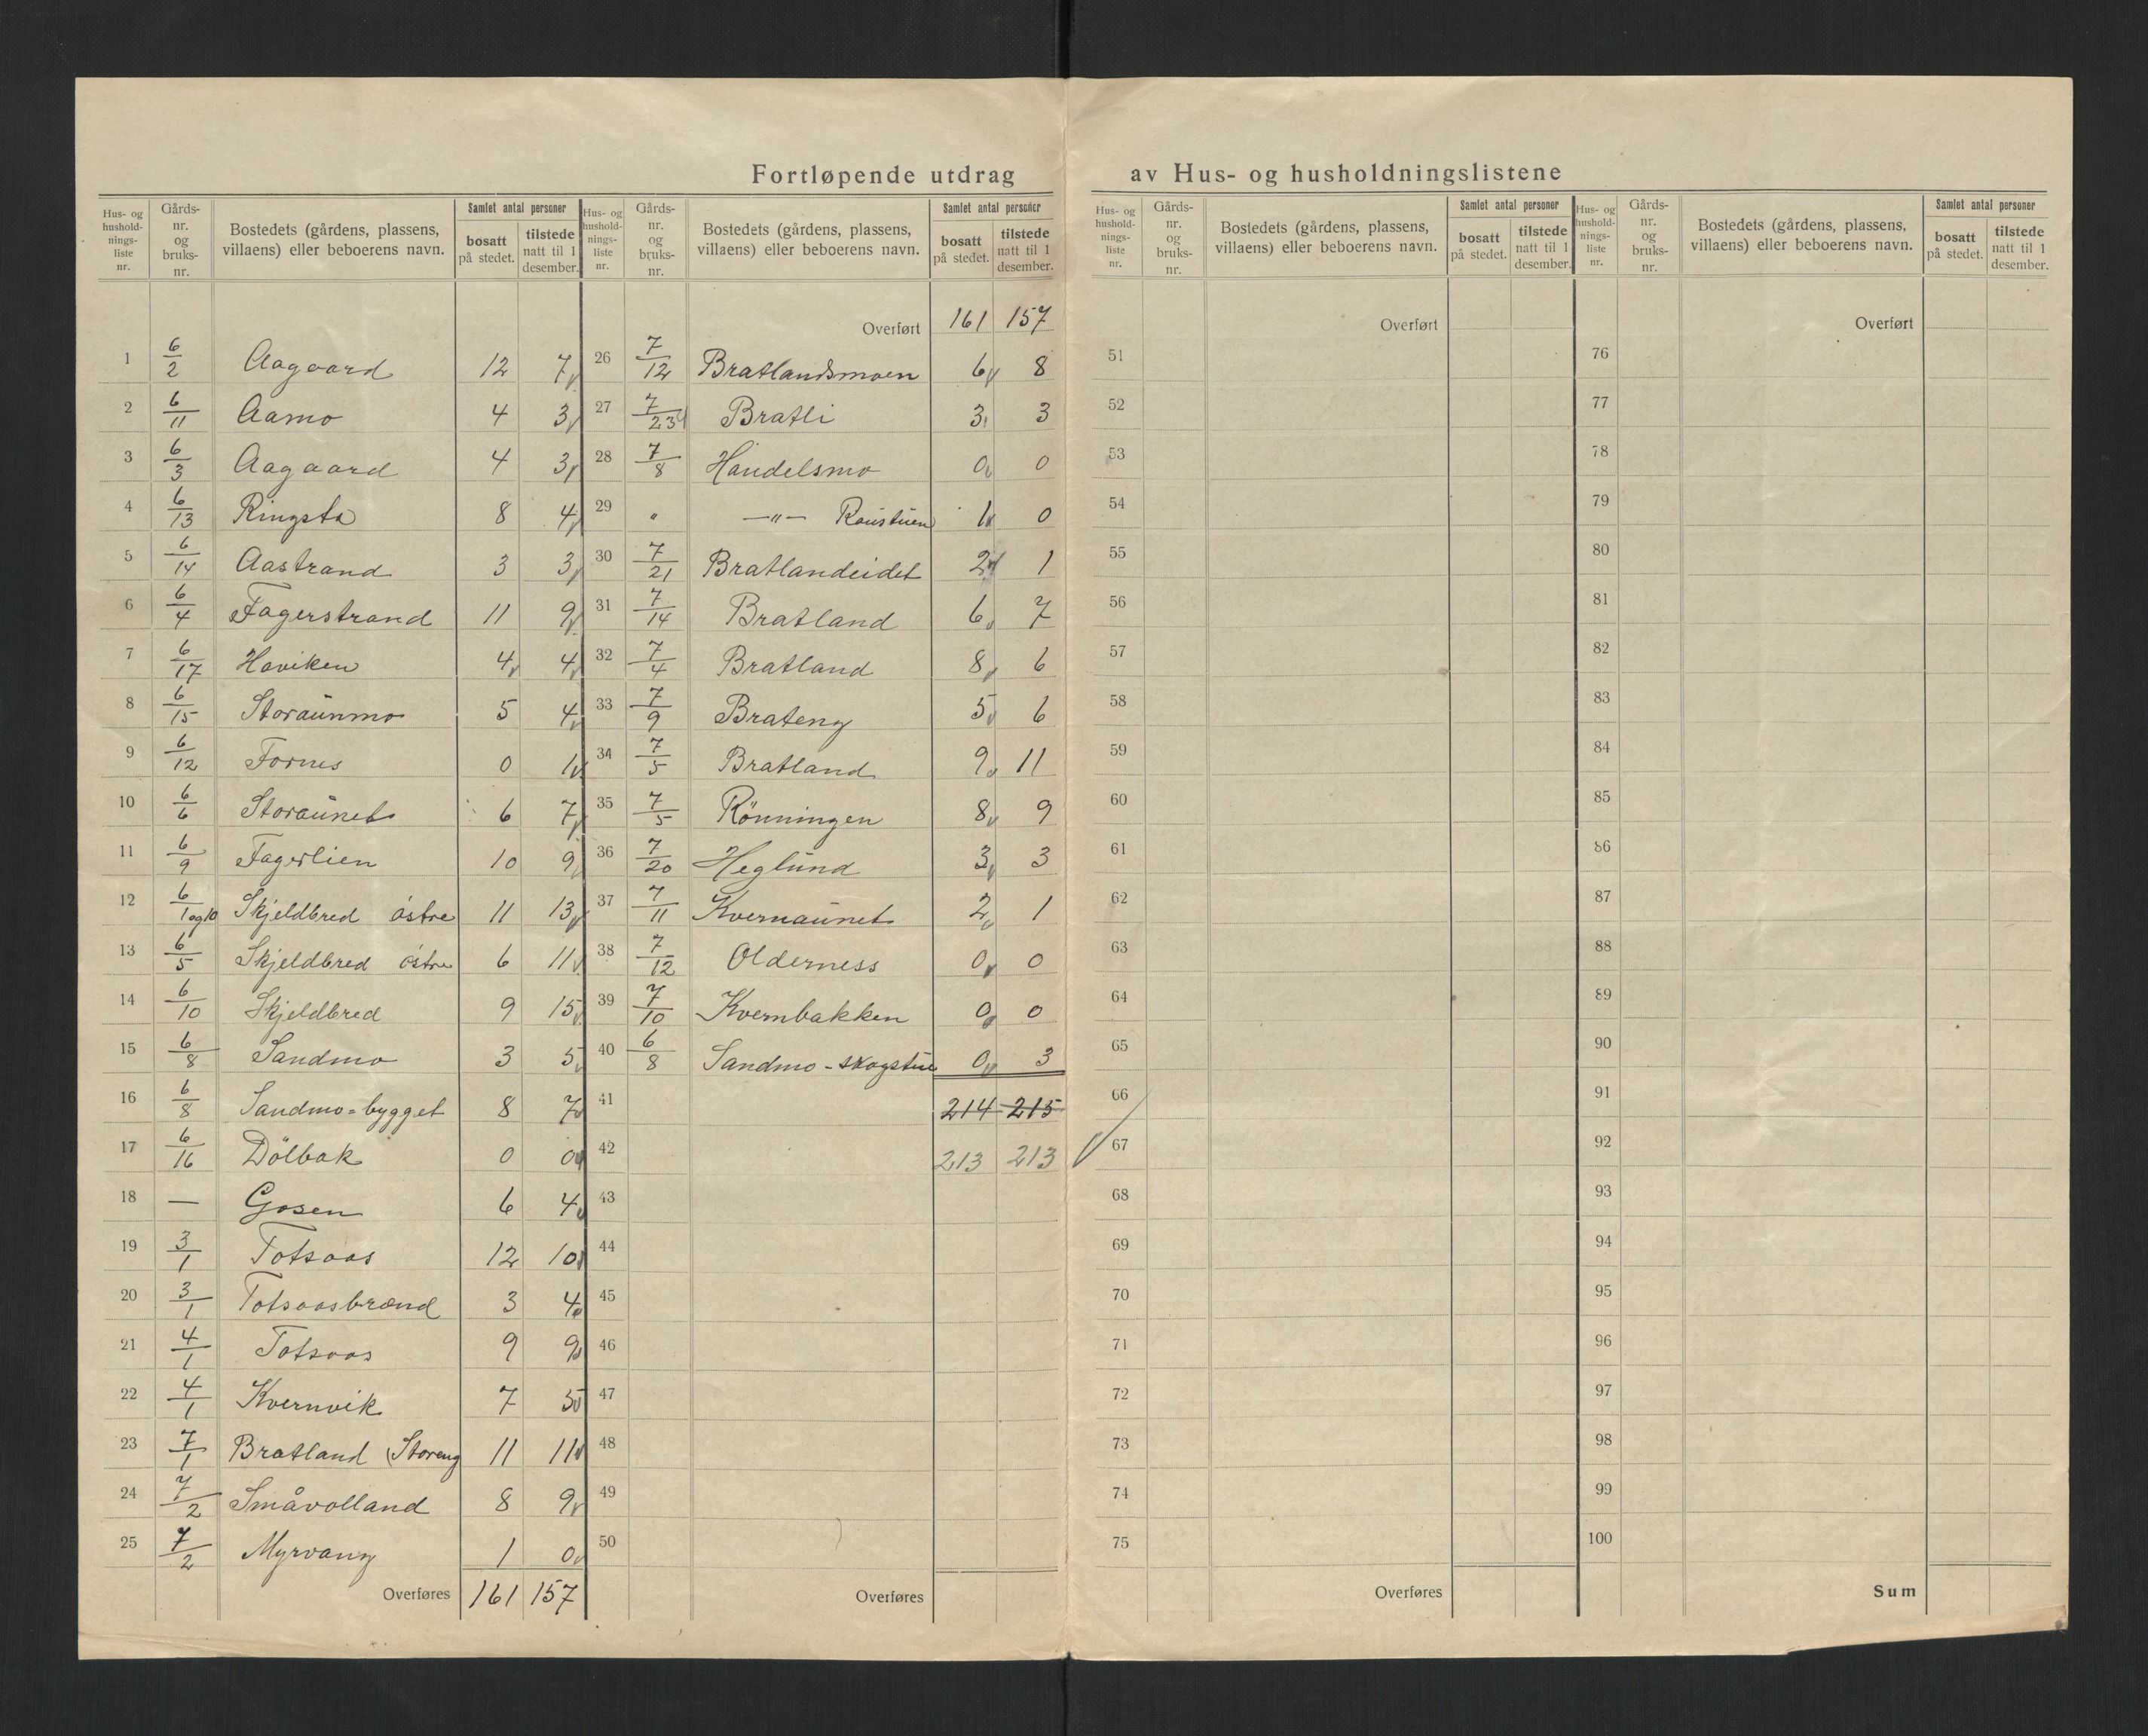 Fortløpende utdrag av Hus- og husholdningslistene
Hus- og hushold-nings-liste nr. | Gårds-nr. og bruks-nr. | Bostedets (gårdens, plassens, villaens) eller beboerens navn. | Samlet antal personer | bosatt på stedet. | tilstede natt til 1 desember.
1 6/2 Aagaard 12 7
2 6/11 Aamo 4 3
3 6/3 Aagaard 4 3
4 6/13 Ringsta 8 4
5 6/14 Aastrand 3 3
6 6/4 Fagerstrand 11 9
7 6/17 Haviken 4 4
8 6/15 Storaunmo 5 4
9 6/12 Fornes 0 1
10 6/6 Storaunet 6 7
11 6/9 Fagerlien 10 9
12 6/1og10 Skjeldbred östre 11 13
13 6/5 Skjeldbred östre 6 11
14 6/10 Skjeldbred 9 15
15 6/8 Sandmo 3 5
16 6/8 Sandmo=bygget 8 7
17 6/16 Dölbak 0 0
18 — Gosen 6 4
19 3/1 Totsaas 12 10
20 3/1 Totsaasbrænd 3 4
21 4/1 Totsaas 9 9
22 4/1 Kvernvik 7 5
23 7/1 Bratland (Storeng 11 11
24 7/2 Småvolland 8 9
25 7/2 Myrvang 1 0
Overføres 161 157
Hus- og hushold-nings-liste nr. | Gårds-nr. og bruks-nr. | Bostedets (gårdens, plassens, villaens) eller beboerens navn. | Samlet antal personer | bosatt på stedet. | tilstede natt til 1 desember.
Overført 161 157
26 7/12 Bratlandsmoen 6 8
27 7/23 Bratli 3 3
28 7/8 Handelsmo 0 0
29 " —"— Raustuen 1 0
30 7/21 Bratlandeidet 2 1
31 7/14 Bratland 6 7
32 7/4 Bratland 8 6
33 7/9 Brateng 5 6
34 7/5 Bratland 9 11
35 7/5 Rönningen 8 9
36 7/20 Heglund 3 3
37 7/11 Kvernaunet 2 1
38 7/12 Olderness 0 0
39 7/10 Kvernbakken 0 0
40 6/8 Sandmo-skogstue 0 3
41 214 215
42 213 213
43
44
45
46
47
48
49
50
Overføres
Hus- og hushold-nings-liste nr. | Gårds-nr. og bruks-nr. | Bostedets (gårdens, plassens, villaens) eller beboerens navn. | Samlet antal personer | bosatt på stedet. | tilstede natt til 1 desember.
Overført
51
52
53
54
55
56
57
58
59
60
61
62
63
64
65
66
67
68
69
70
71
72
73
74
75
Overføres
Hus- og hushold-nings-liste nr. | Gårds-nr. og bruks-nr. | Bostedets (gårdens, plassens, villaens) eller beboerens navn. | Samlet antal personer | bosatt på stedet. | tilstede natt til 1 desember.
Overført
76
77
78
79
80
81
82
83
84
85
86
87
88
89
90
91
92
93
94
95
96
97
98
99
100
Sum